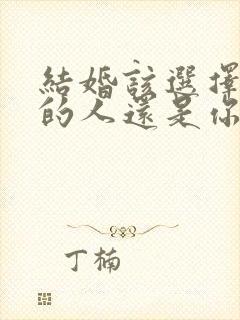 結婚該選擇
的人還是你
丁楠